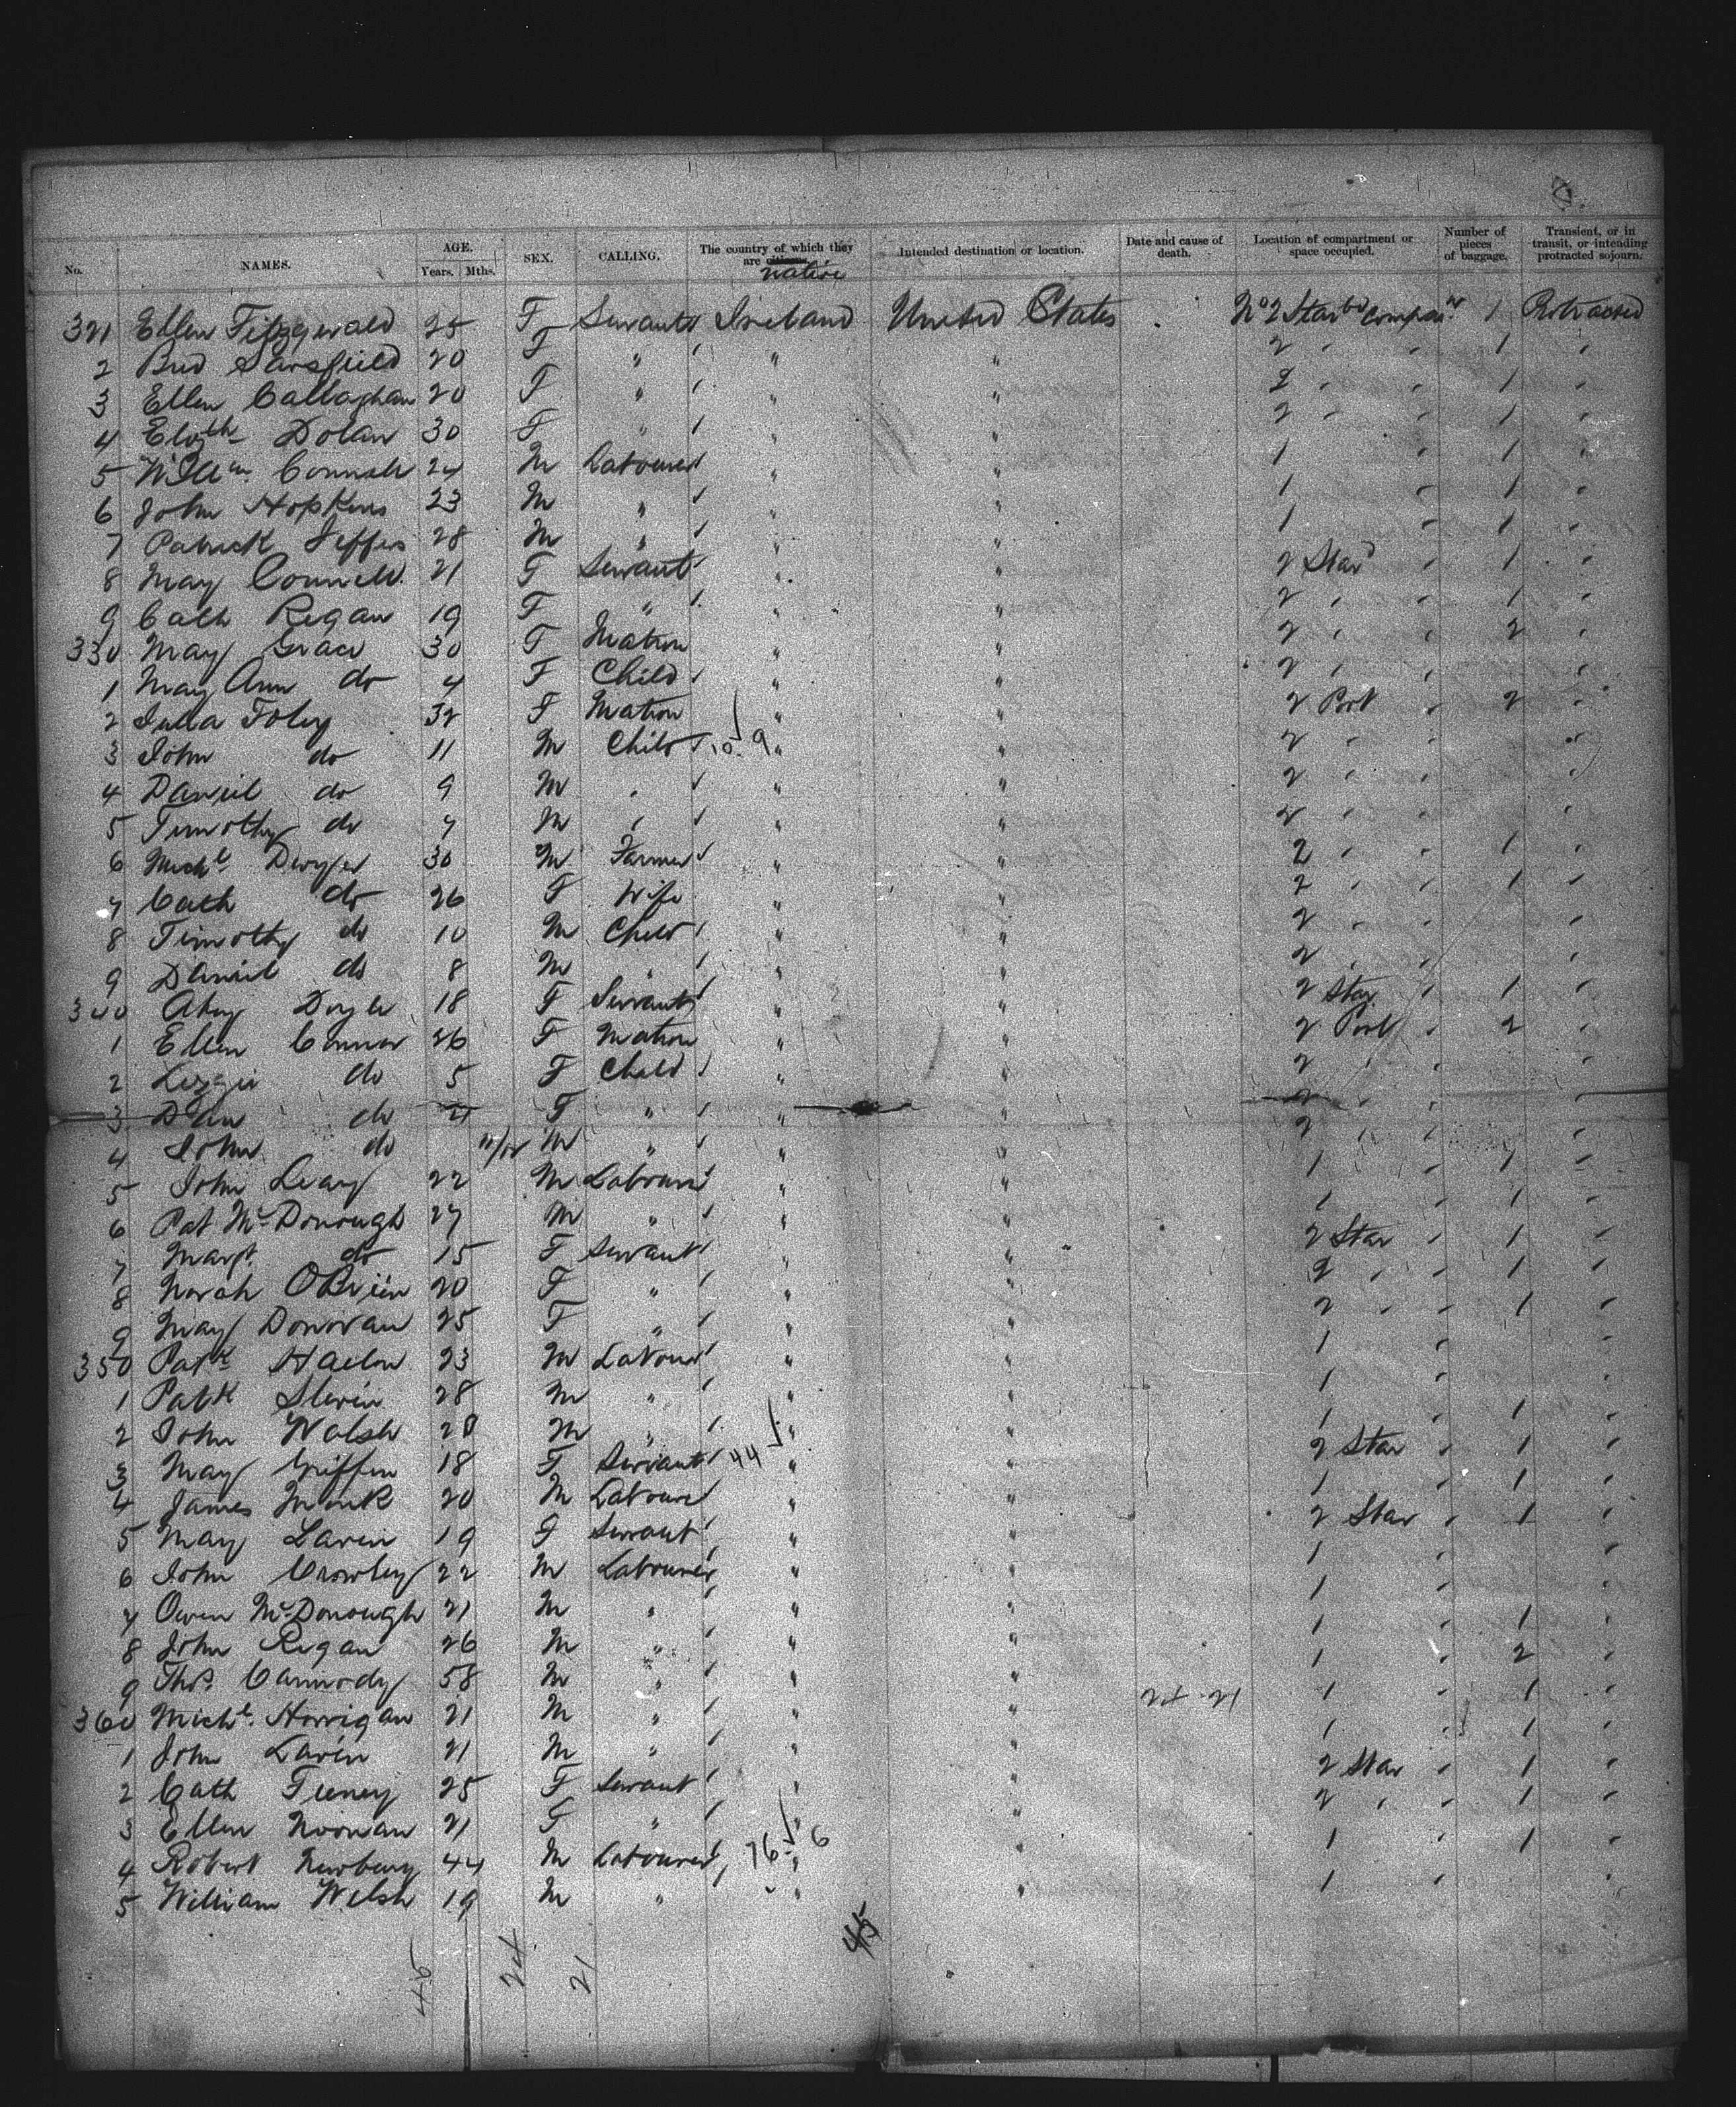 No. NAMES. AGE. Years. Mths. SEX. CALLING. The country of which they are citizens. native Intended destination or location. Date and cause of death. Location of compartment or space occupied. Number of pieces of baggage. Transient, or in transit, or intending protracted sojourn.
321 Ellen Fitzgerald 25 F Servant Ireland United States No 2 Starbd Compart 1 Protracted
2 Brid Sarsfield 20 F " " " 2 " " 1 "
3 Ellen Callaghan 20 F " " " 2 " " 1 "
4 Elizth Dolan 30 F " " " 2 " " 1 "
5 Willm Connell 24 M Labourer " " 1 " 1 "
6 John Hopkins 23 M " " " 1 " 1 "
7 Patrick Jeffers 28 M " " " 1 " 1 "
8 Mary Connell 21 F Servant " " 2 Stard " 1 "
9 Cath Regan 19 F " " " 2 " " 1 "
330 Mary Grace 30 F Matron " " 2 " " 2 "
1 Mary Ann do 4 F Child " " 2 " "
2 Julia Foley 32 F Matron " " 2 Port " 2 "
3 John do 11 M Child 10 9 " " 2 " " "
4 Daniel do 9 M " " " 2 " " "
5 Timothy do 7 M " " " 2 " " "
6 Michl Dwyer 30 M Farmer " " 2 " " 1 "
7 Cath do 26 F Wife " " 2 " " 1 "
8 Timothy do 10 M Child " " 2 " " "
9 Daniel do 8 M " " " 2 " " "
340 Doyle 18 F Servant " " 2 Star " 1 "
1 Ellen Connor 26 F Matron " " 2 Port " 2 "
2 Lizzie do 5 F Child " " 2 " " "
3 do F " " " 2 " " "
4 John do 11/12 M " " " 2 " " "
5 John Leary 22 M Labourer " " 1 " 1 "
6 Pat McDonough 27 M " " " 1 " 1 "
7 Margt do 15 F Servant " " 2 Star " 1 "
8 Norah OBrien 20 F " " " 2 " " 1 "
9 Mary Donovan 25 F " " " 2 " " 1 "
350 Patk 23 M Labourer " " 1 " "
1 Patk Slevin 28 M " " " 1 "
2 John Walsh 28 M " " " 1 " 1 "
3 Mary Griffin 18 F Servant 44 " " 2 Star " 1 "
4 James Monk 20 M Labourer " " 1 " 1 "
5 Mary Lavin 19 F Servant " " 2 Star " 1 "
6 John Crowley 22 M Labourer " " 1 " "
7 Owen McDonough 21 M " " " 1 " "
8 John Regan 26 M " " " 1 " 1 "
9 Thos Carmody 58 M " " " 1 " 2 "
360 Michl Horrigan 21 M " " " 24 21 1 " 1 "
1 John Lavin 21 M " " " 1 " 1 "
2 Cath Feeney 25 F Servant " " 2 Star " 1 "
3 Ellen Noonan 21 F " " " 2 " " 1 "
4 Robert Newbury 44 M Labourer 76 6 " " 1 " 1 "
5 William Welsh 19 M " " " 1 " "
45 24 21 45